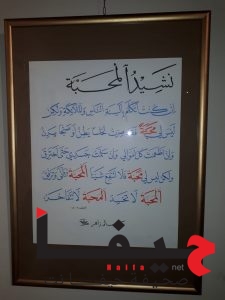 نشيد المحبة
إن كنت أتكلم ألسنة الناس والملائكة ولكن
ليس لي محبة صرت نحاسا يطن أو صنجا يرن
وإن أطعمت كل أموالي وإن سلمت جسدي حتى أحترق
ولكن ليس لي محبة فلا أنتفع شيئا المحبة تتأنى وترفق
المحبة لا تحسد المحبة لا تتفاخر
حيفا
Haifa .net